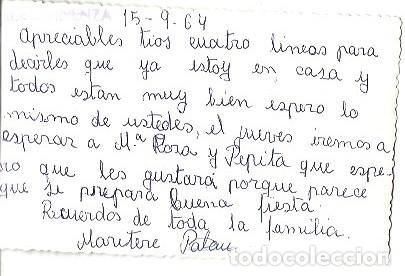 15-9-64
Apreciables tios cuatro lineas para
decirles que ya estoy en casa y
todos estan muy bien espero lo
mismo de ustedes, el jueves iremos a
esperar a M.ª Rosa y Pepita que espe-
ro que les gustará porque parece
que se prepara buena fiesta.
Recuerdos de toda la familia.
Maritere Palau
todocoleccion.net